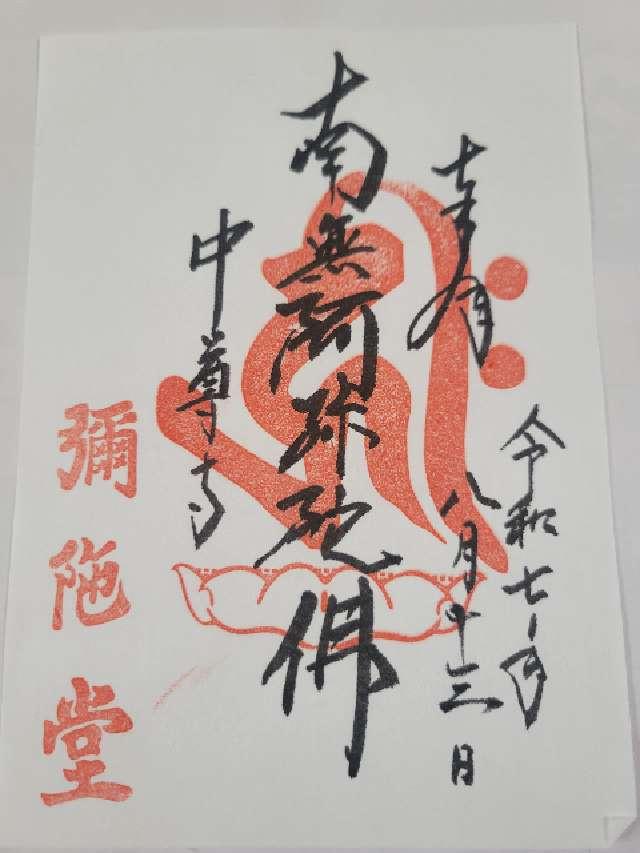 奉拝
令和七年
八月十三日
南無阿弥陀佛
中尊寺
彌陀堂